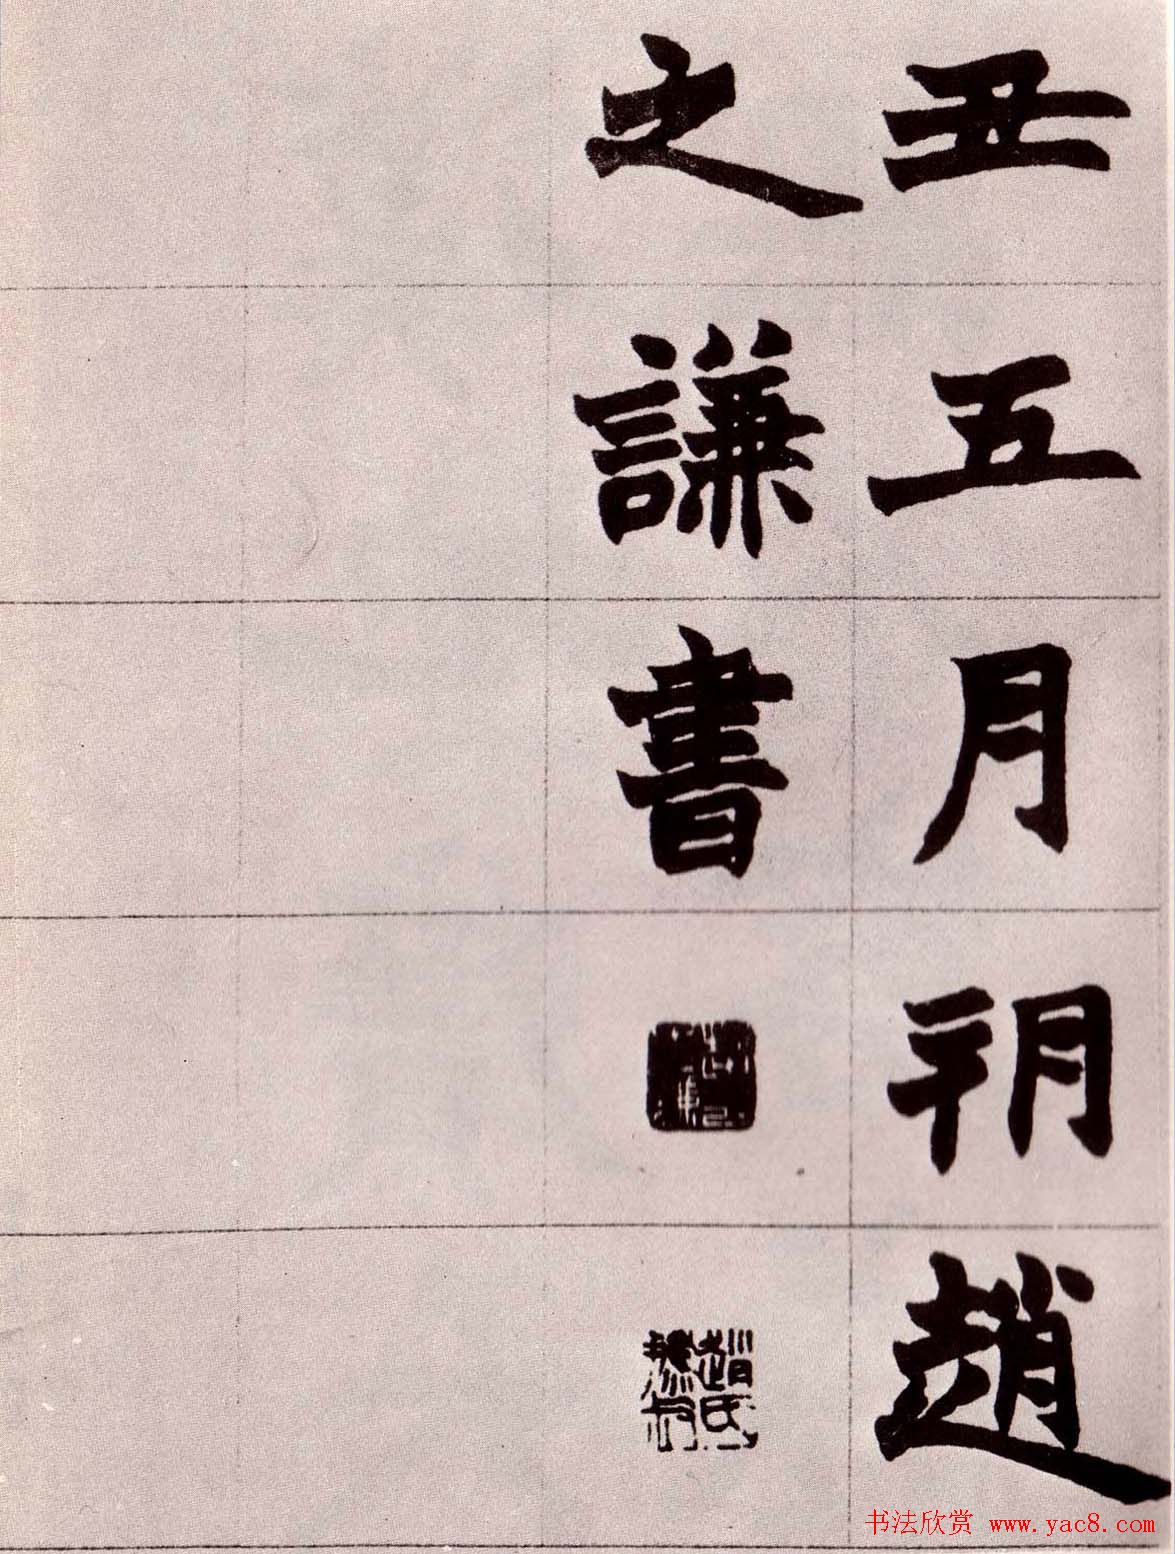 丑五月朔趙
之謙書
趙氏撝叔
书法欣赏 www.yac8.com